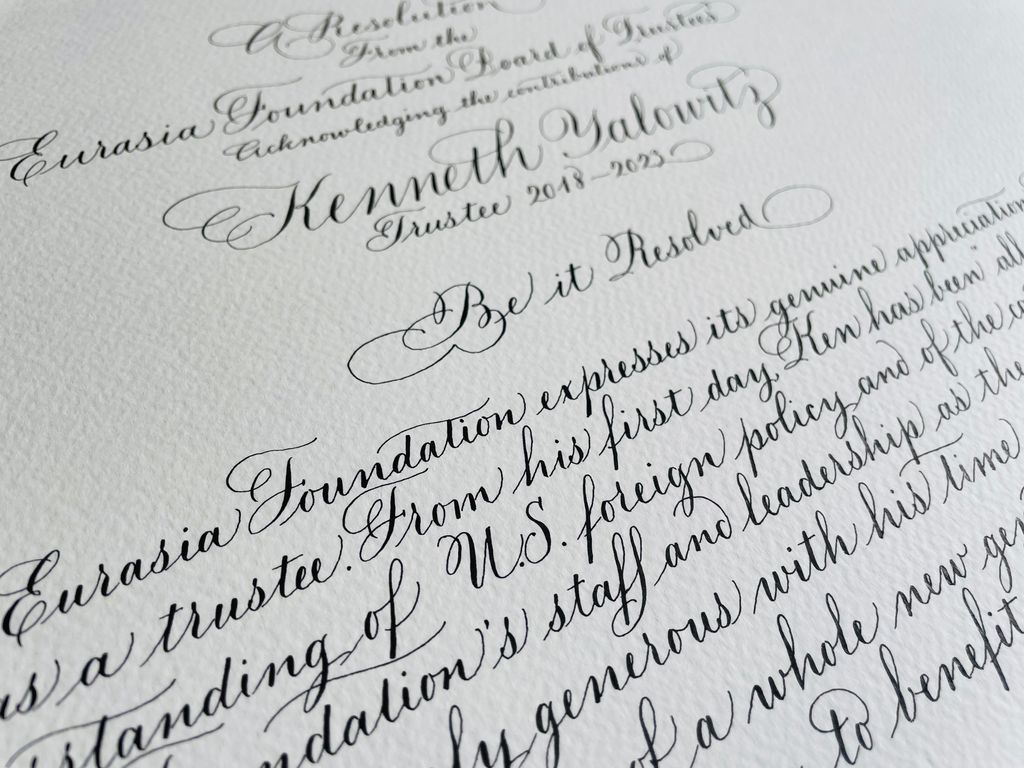 A Resolution
From the
Eurasia Foundation Board of Trustees
Acknowledging the contributions of
Kenneth Yalowitz
Trustee 2018-2023
Be it Resolved
Eurasia Foundation expresses its genuine appreciation
as a trustee. From his first day, Ken has been all
standing of U.S. foreign policy and of the
undation's staff and leadership as the
ly generous with his time
of a whole new gen
to benefit